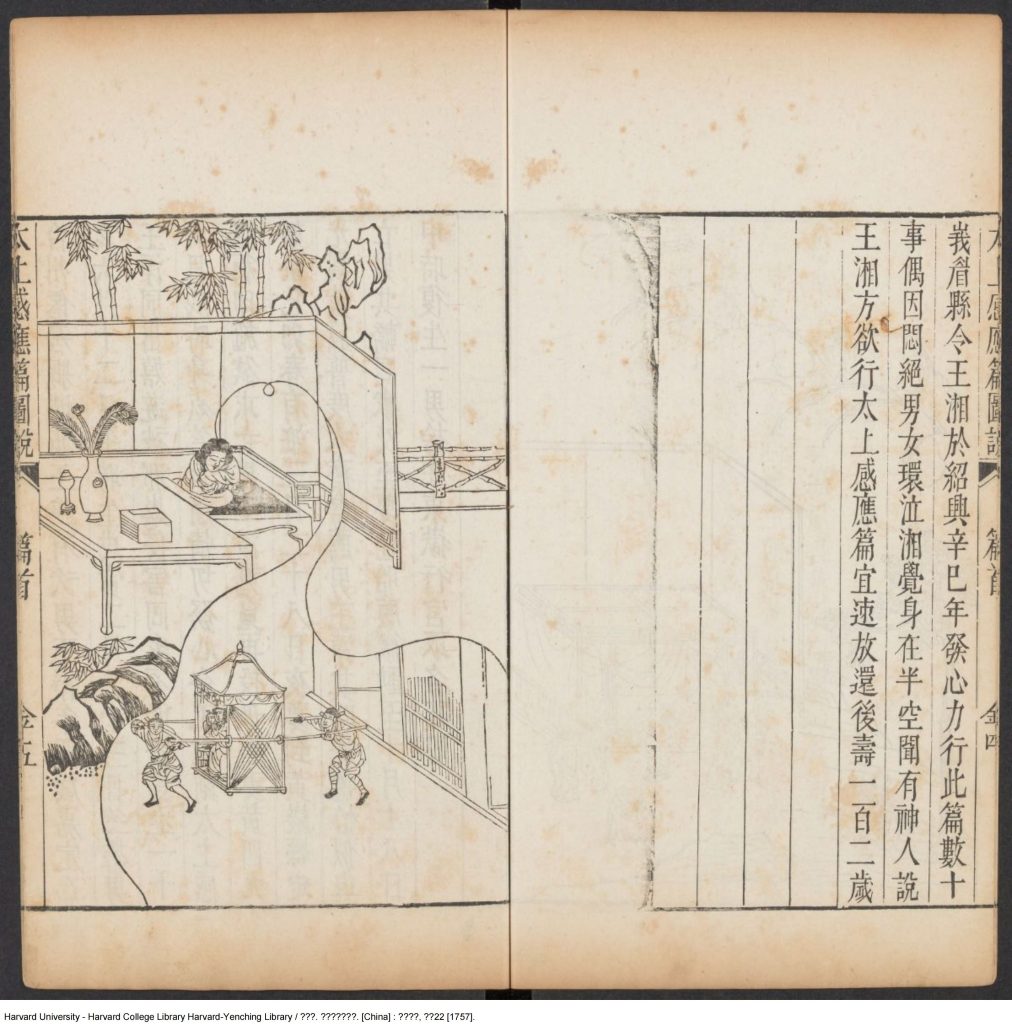 太上感應篇圖說
篇首
金四
峩眉縣令王湘於紹興辛巳年發心力行此篇數十
事偶因悶絕男女環泣湘覺身在半空聞有神人說
王湘方欲行太上感應篇宜速放還後壽一百二歲
太上感應篇圖說
篇首
金五
Harvard University - Harvard College Library Harvard-Yenching Library / ???. ???????. [China] : ????, ??22 [1757].